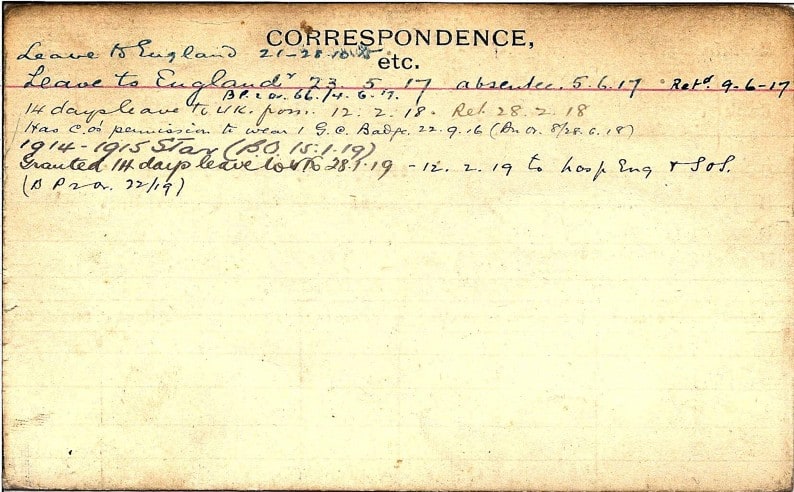 CORRESPONDENCE,
etc.
Leave to England 21-28-10-15
Leave to England 23 5 17 absentee. 5.6.17 Retd 9-6-17
66/4.6.17.
14 days leave to U.K. from 12.2.18. Ret. 28.2.18
Has C.O's permission to wear 1 G.C. Badge. 22.9.16 (8/28.6.18)
1914-1915 Star (B.O. 15.1.19)
Granted 14 days leave to 28.1.19 - 12.2.19 to hosp Eng & S.O.S.
(B P2 or. 22/19)